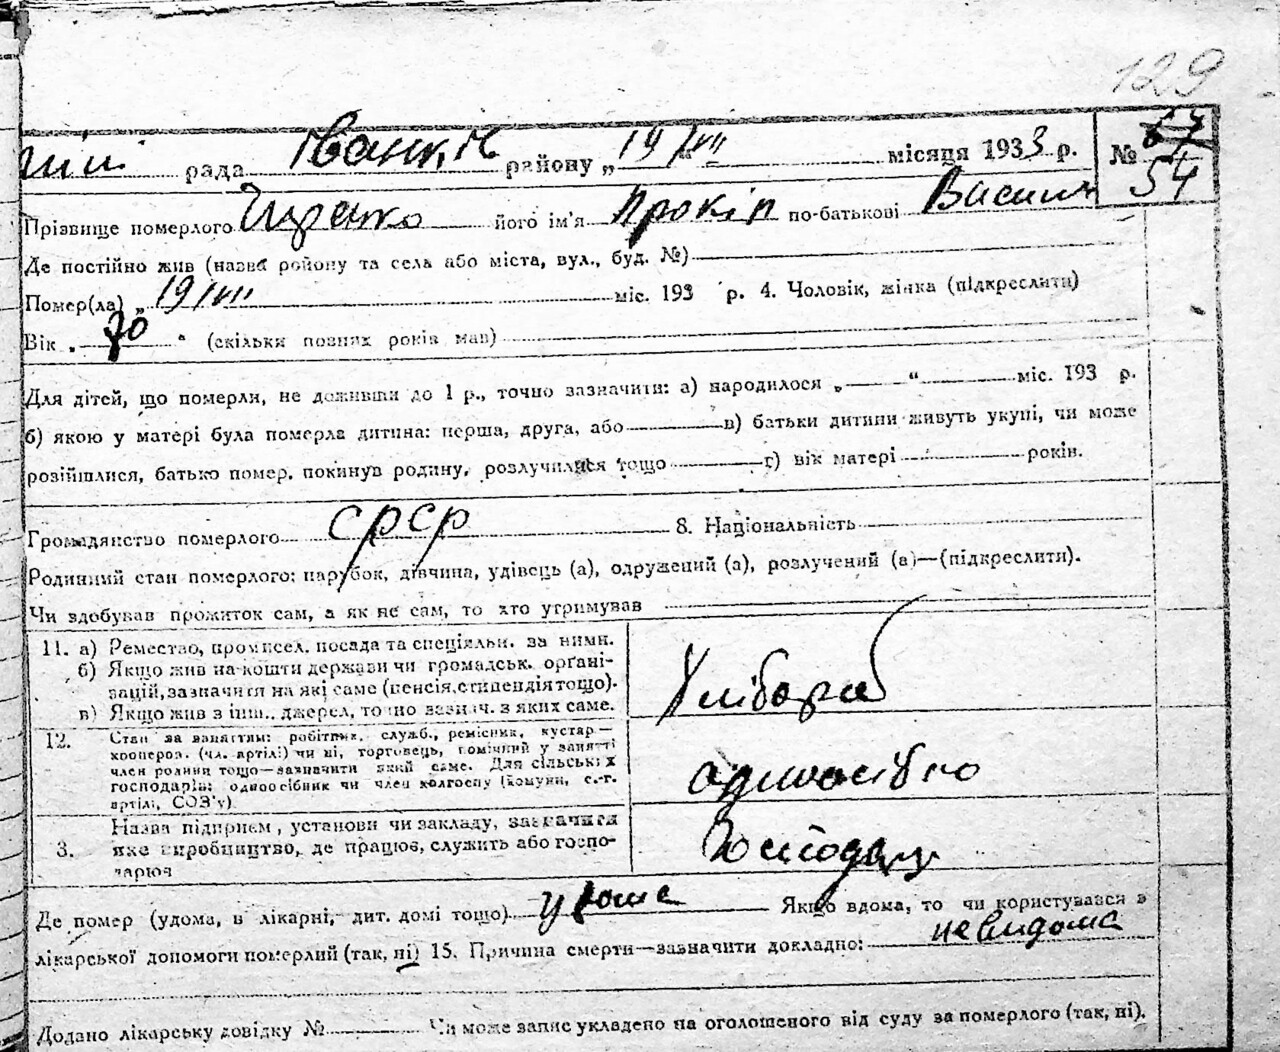 129
рада Іванків району „ 19/VII місяця 1933 р. № 67
54
Прізвище померлого його ім'я Прокіп по-батькові Василь
Де постійно жив (назва району та села або міста, вул., буд. №)
Помер(ла) „ 19/VII міс. 193 р. 4. Чоловік, жінка (підкреслити)
Вік „ 70 “ (скільки повних років мав)
Для дітей, що померли, не доживши до 1 р., точно зазначити: а) народилося „ “ міс. 193 р.
б) якою у матері була померла дитина: перша, друга, або в) батьки дитини живуть укупі, чи може
розійшлися, батько помер, покинув родину, розлучилися тощо г) вік матері років.
Громадянство померлого СРСР 8. Національність
Родинний стан померлого: парубок, дівчина, удівець (а), одружений (а), розлучений (а)—(підкреслити).
Чи здобував прожиток сам, а як не сам, то хто утримував
11. а) Ремество, промисел, посада та спеціяльн. за ними.
б) Якщо жив на кошти держави чи громадськ. органі-
зацій, зазначити на які саме (пенсія, стипендія тощо).
в) Якщо жив з інш. джерел, точно зазнач. з яких саме.
Хлібороб
12. Стан за заняттям: робітник, служб., ремісник, кустар—
кооперов. (чл. артілі) чи ні, торговець, помічний у занятті
член родини тощо—зазначити який саме. Для сільських
господарів: одноосібник чи член колгоспу (комуни, с.-г.
артілі, СОЗ'у)
одноосібно
3. Назва підприєм., установи чи закладу, зазначити
яке виробництво, де працює, служить або госпо-
дарює
Господар
Де помер (удома, в лікарні, дит. домі тощо) удома Якщо вдома, то чи користувався з
лікарської допомоги померлий (так, ні) 15. Причина смерти—зазначити докладно: невидома
Додано лікарську довідку № Чи може запис укладено на оголошеного від суду за померлого (так, ні).